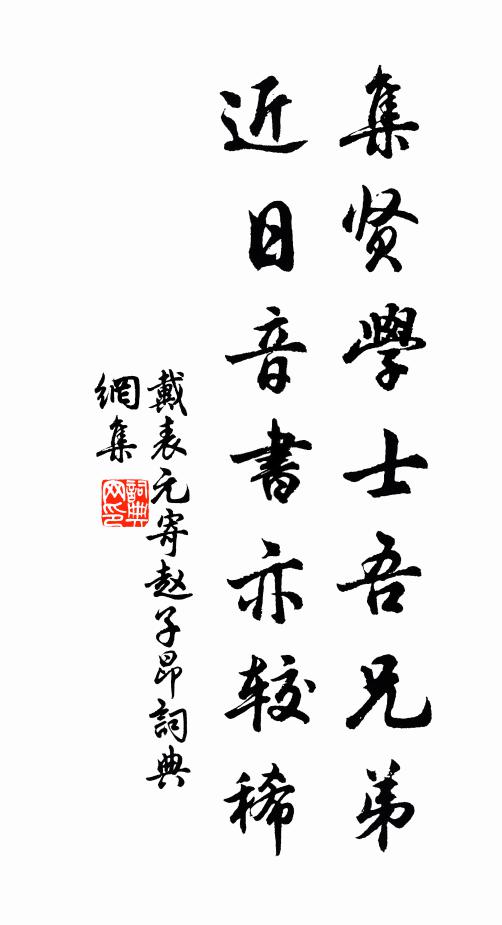 集贤學士吾兄弟
近日音書亦较稀
戴表元寄赵子昂詞典
網集
詞典
网印